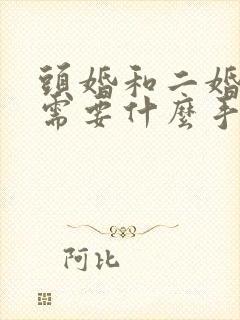 頭婚和二婚
需要什麼手
阿比